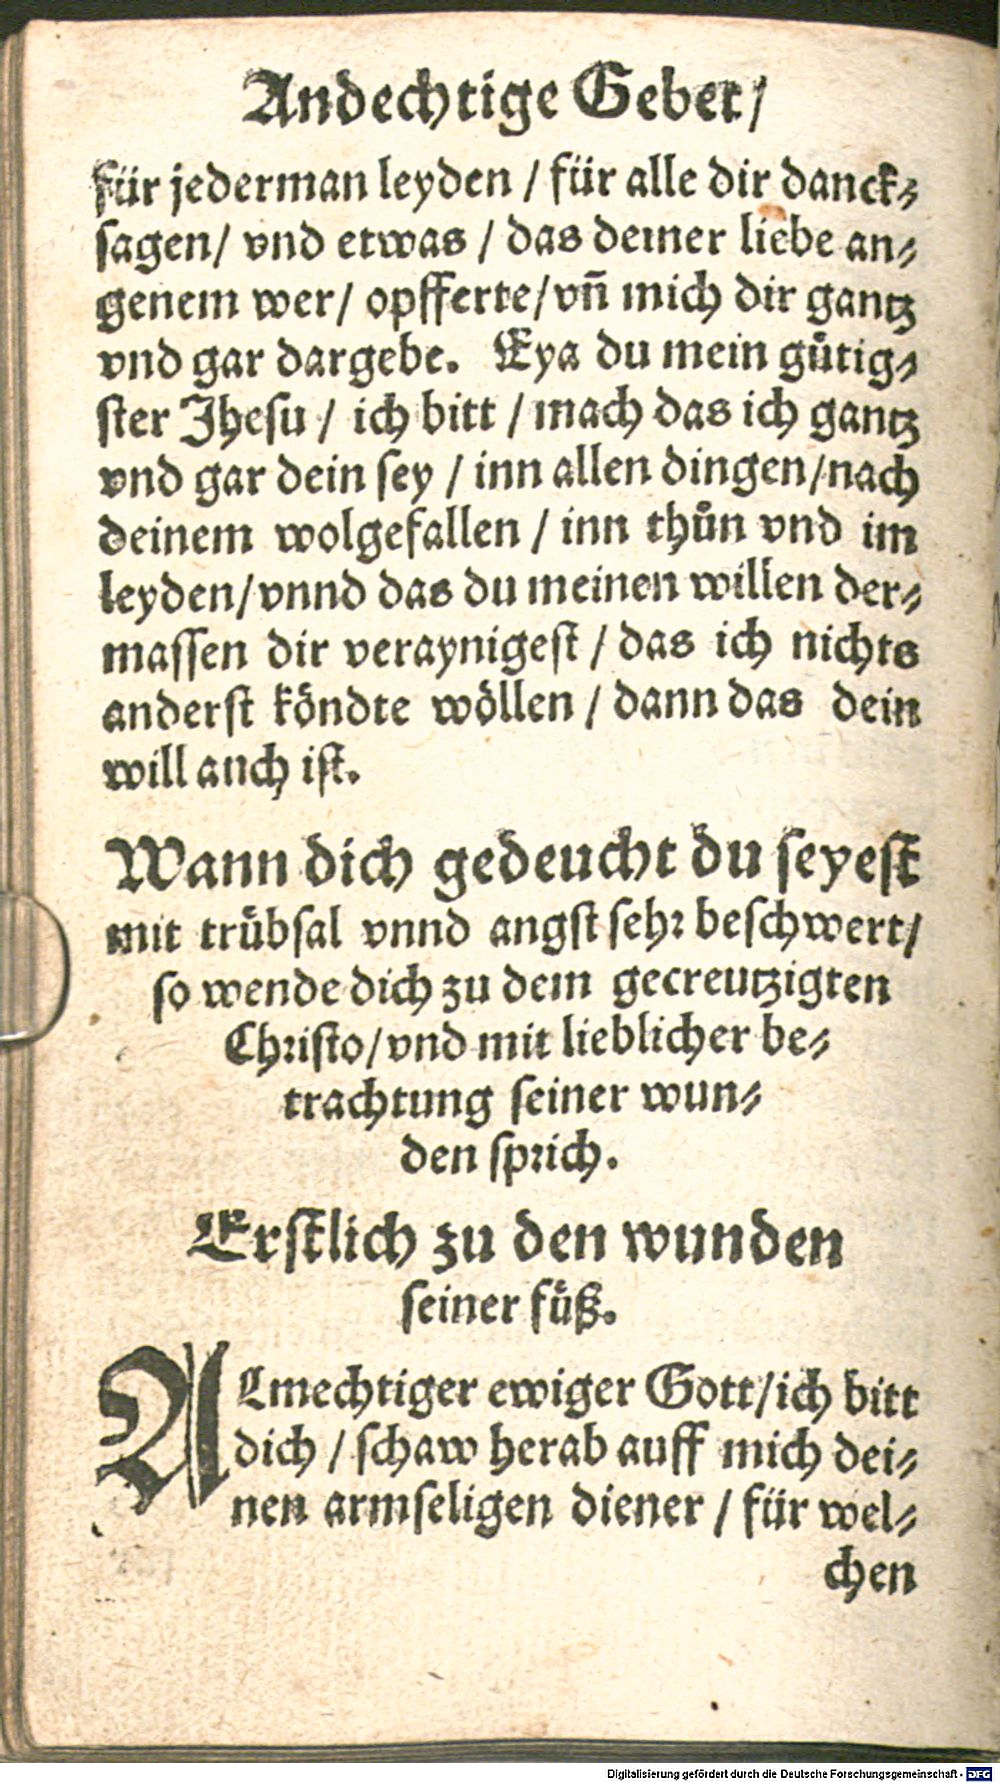 Andechtige Gebet/
für jederman leyden / für alle dir danck⸗
sagen/ vnd etwas / das deiner liebe an⸗
genem wer/ opfferte/vñ mich dir gantz
vnd gar dargebe. Eya du mein gütig⸗
ster Jhesu / ich bitt / mach das ich gantz
vnd gar dein sey / inn allen dingen/nach
deinem wolgefallen / inn thůn vnd im
leyden/vnnd das du meinen willen der⸗
massen dir veraynigest / das ich nichts
anderst köndte wöllen / dann das dein
will auch ist.
Wann dich gedeucht du seyest
mit trübsal vnnd angst sehr beschwert/
so wende dich zu dem gecreutzigten
Christo/vnd mit lieblicher be⸗
trachtung seiner wun⸗
den sprich.
Erstlich zu den wunden
seiner füß.
ALmechtiger ewiger Gott/ich bitt
dich / schaw herab auff mich dei⸗
nen armseligen diener / für wel⸗
chen
Digitalisierung gefördert durch die Deutsche Forschungsgemeinschaft - DFG